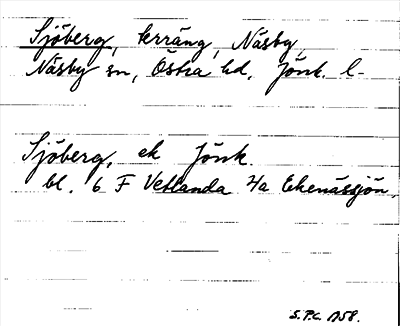 Sjöberg, krräng, Näsby,
Näsby sn, Östra hd, Jönk. l.
Sjöberg, ek Jönk.
bl. 6 F Vetlanda 4a Ekenässjön.
S.P.C. 1958.